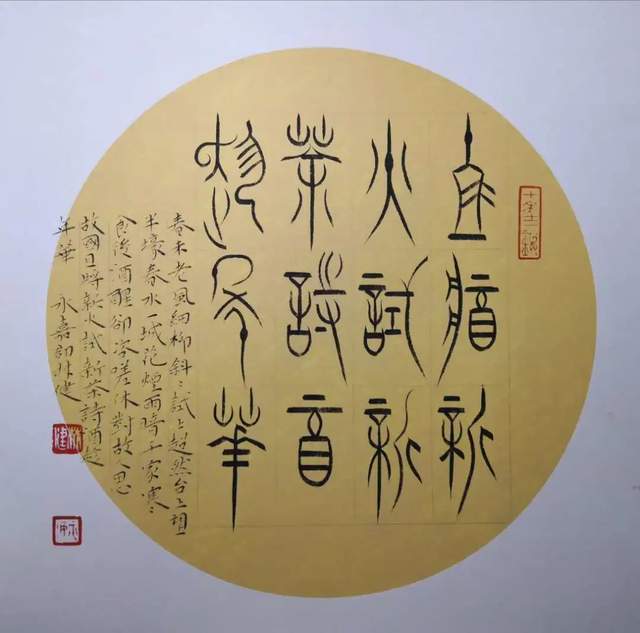 且將新
火試新
茶詩酒
趁年華
春未老風細柳斜〻試上超然台上望
半壕春水一城花煙雨暗千家寒
食後酒醒卻咨嗟休對故人思
故國且將新火試新茶詩酒趁
年華 永嘉林建
林建